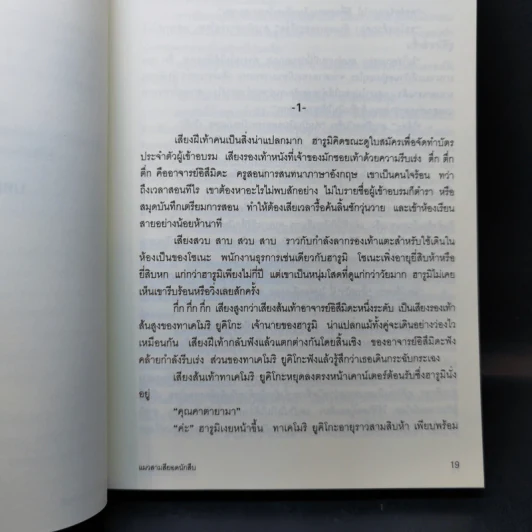 -1-
เสียงฝีเท้าคนเป็นสิ่งน่าแปลกมาก ฮารูมิคิดขณะดูใบสมัครเพื่อจัดทำบัตร
ประจำตัวผู้เข้าอบรม เสียงรองเท้าหนังที่เจ้าของมักซอยเท้าด้วยความรีบเร่ง ตึ่ก ตึ่ก
ตึ่ก คืออาจารย์อิสึมิดะ ครูสอนการสนทนาภาษาอังกฤษ เขาเป็นคนใจร้อน ทว่า
ถึงเวลาสอนทีไร เขาต้องหาอะไรไม่พบสักอย่าง ไม่ใบรายชื่อผู้เข้าอบรมก็ตำรา หรือ
สมุดบันทึกเตรียมการสอน ทำให้ต้องเสียเวลารื้อค้นลิ้นชักวุ่นวาย และเข้าห้องเรียน
สายอย่างน้อยห้านาที
เสียงสวบ สาบ สวบ สาบ ราวกับกำลังลากรองเท้าแตะสำหรับใช้เดินใน
ห้องเป็นของโซเนะ พนักงานธุรการเช่นเดียวกับฮารูมิ โซเนะเพิ่งอายุยี่สิบห้าหรือ
ยี่สิบหก แก่กว่าฮารูมิเพียงไม่กี่ปี แต่เขาเป็นหนุ่มโสดที่ดูแก่กว่าวัยมาก ฮารูมิไม่เคย
เห็นเขารีบร้อนหรือวิ่งเลยสักครั้ง
กึ่ก กึ่ก กึ่ก เสียงสูงกว่าเสียงส้นเท้าอาจารย์อิสึมิดะหนึ่งระดับ เป็นเสียงรองเท้า
ส้นสูงของทาเคโมริ ยูคิโกะ เจ้านายของฮารูมิ น่าแปลกแม้ทั้งคู่จะเดินอย่างว่องไว
เหมือนกัน เสียงฝีเท้ากลับฟังแล้วแตกต่างกันโดยสิ้นเชิง ของอาจารย์อิสึมิดะฟัง
คล้ายกำลังรีบเร่ง ส่วนของทาเคโมริ ยูคิโกะฟังแล้วรู้สึกว่าเธอเดินกระฉับกระเฉง
เสียงส้นเท้าทาเคโมริ ยูคิโกะหยุดลงตรงหน้าเคาน์เตอร์ต้อนรับซึ่งฮารูมินั่ง
อยู่
“คุณคาตายามา”
“ค่ะ” ฮารูมิเงยหน้าขึ้น ทาเคโมริ ยูคิโกะอายุราวสามสิบห้า เพียบพร้อม
แมวสามสียอดนักสืบ
19